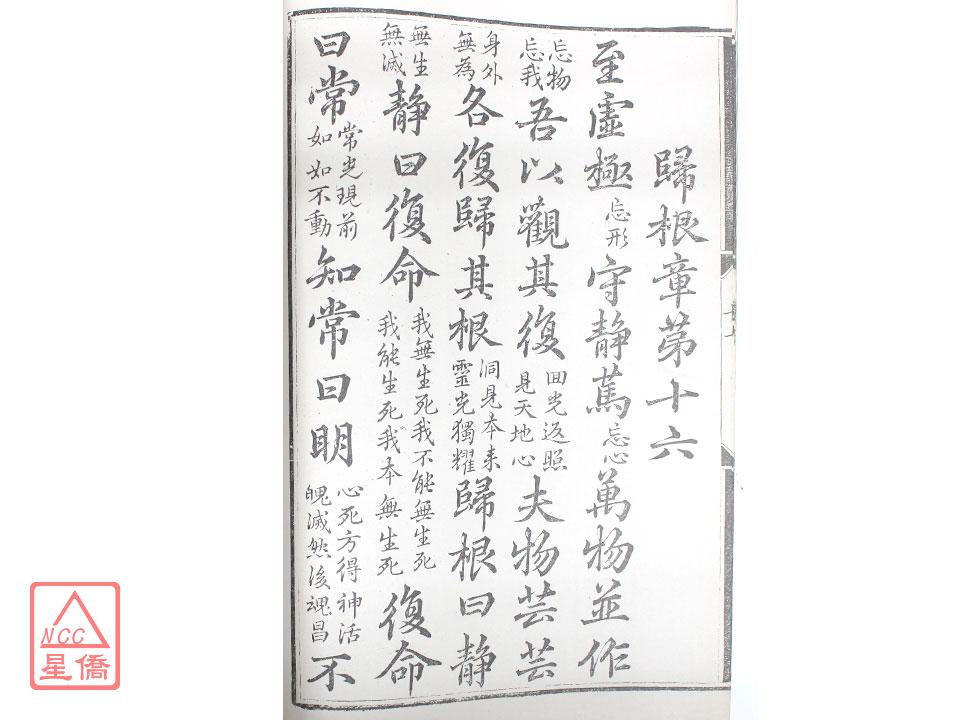 歸根章第十六
至虛極忘形守静篤忘心萬物並作
忘物忘我吾以觀其復囬光返照見天地心夫物芸芸
身外無為各復歸其根洞見本来靈光獨耀歸根曰静
無生無滅静曰復命我無生死我不能無生死我能生死我本無生死復命
曰常常光現前如如不動知常曰明心死方得神活魄滅然後魂昌不
NCC
星僑